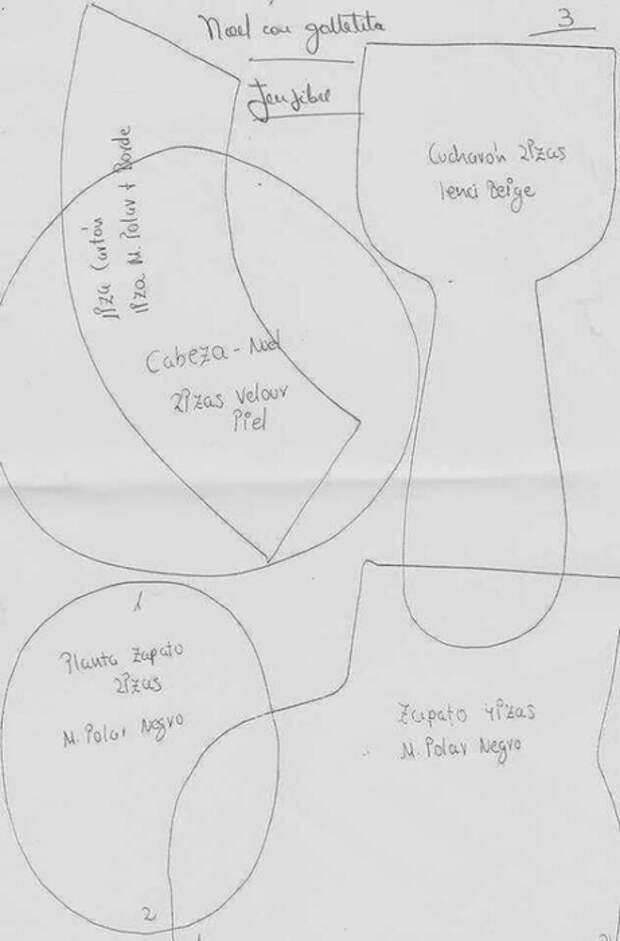 Noel con galletita
3
Jenjibre
Cucharón 2Pzas
lenci Beige
1Pza Cartón
1Pza M. Polar + Borde
Cabeza - Noel
2Pzas Velour
Piel
1
Planta Zapato
2Pzas
M. Polar Negro
2
Zapato 4Pzas
M. Polar Negro
1
2